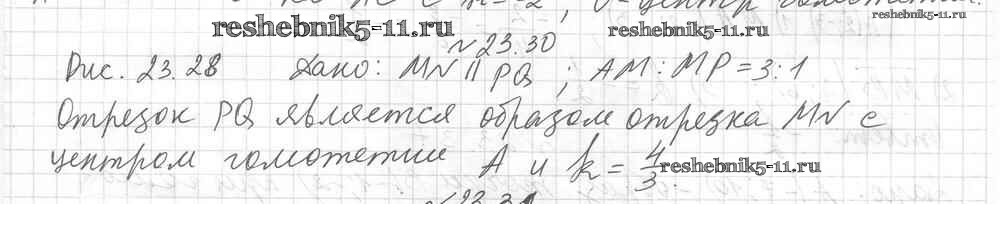 reshebnik5-11.ru
reshebnik5-11.ru
reshebnik5-11.ru
№23.30
Рис. 23.28 Дано: MN || PQ ; AM : MP = 3 : 1
Отрезок PQ является образом отрезка MN с
центром гомотетии A и k = 4/3.
reshebnik5-11.ru